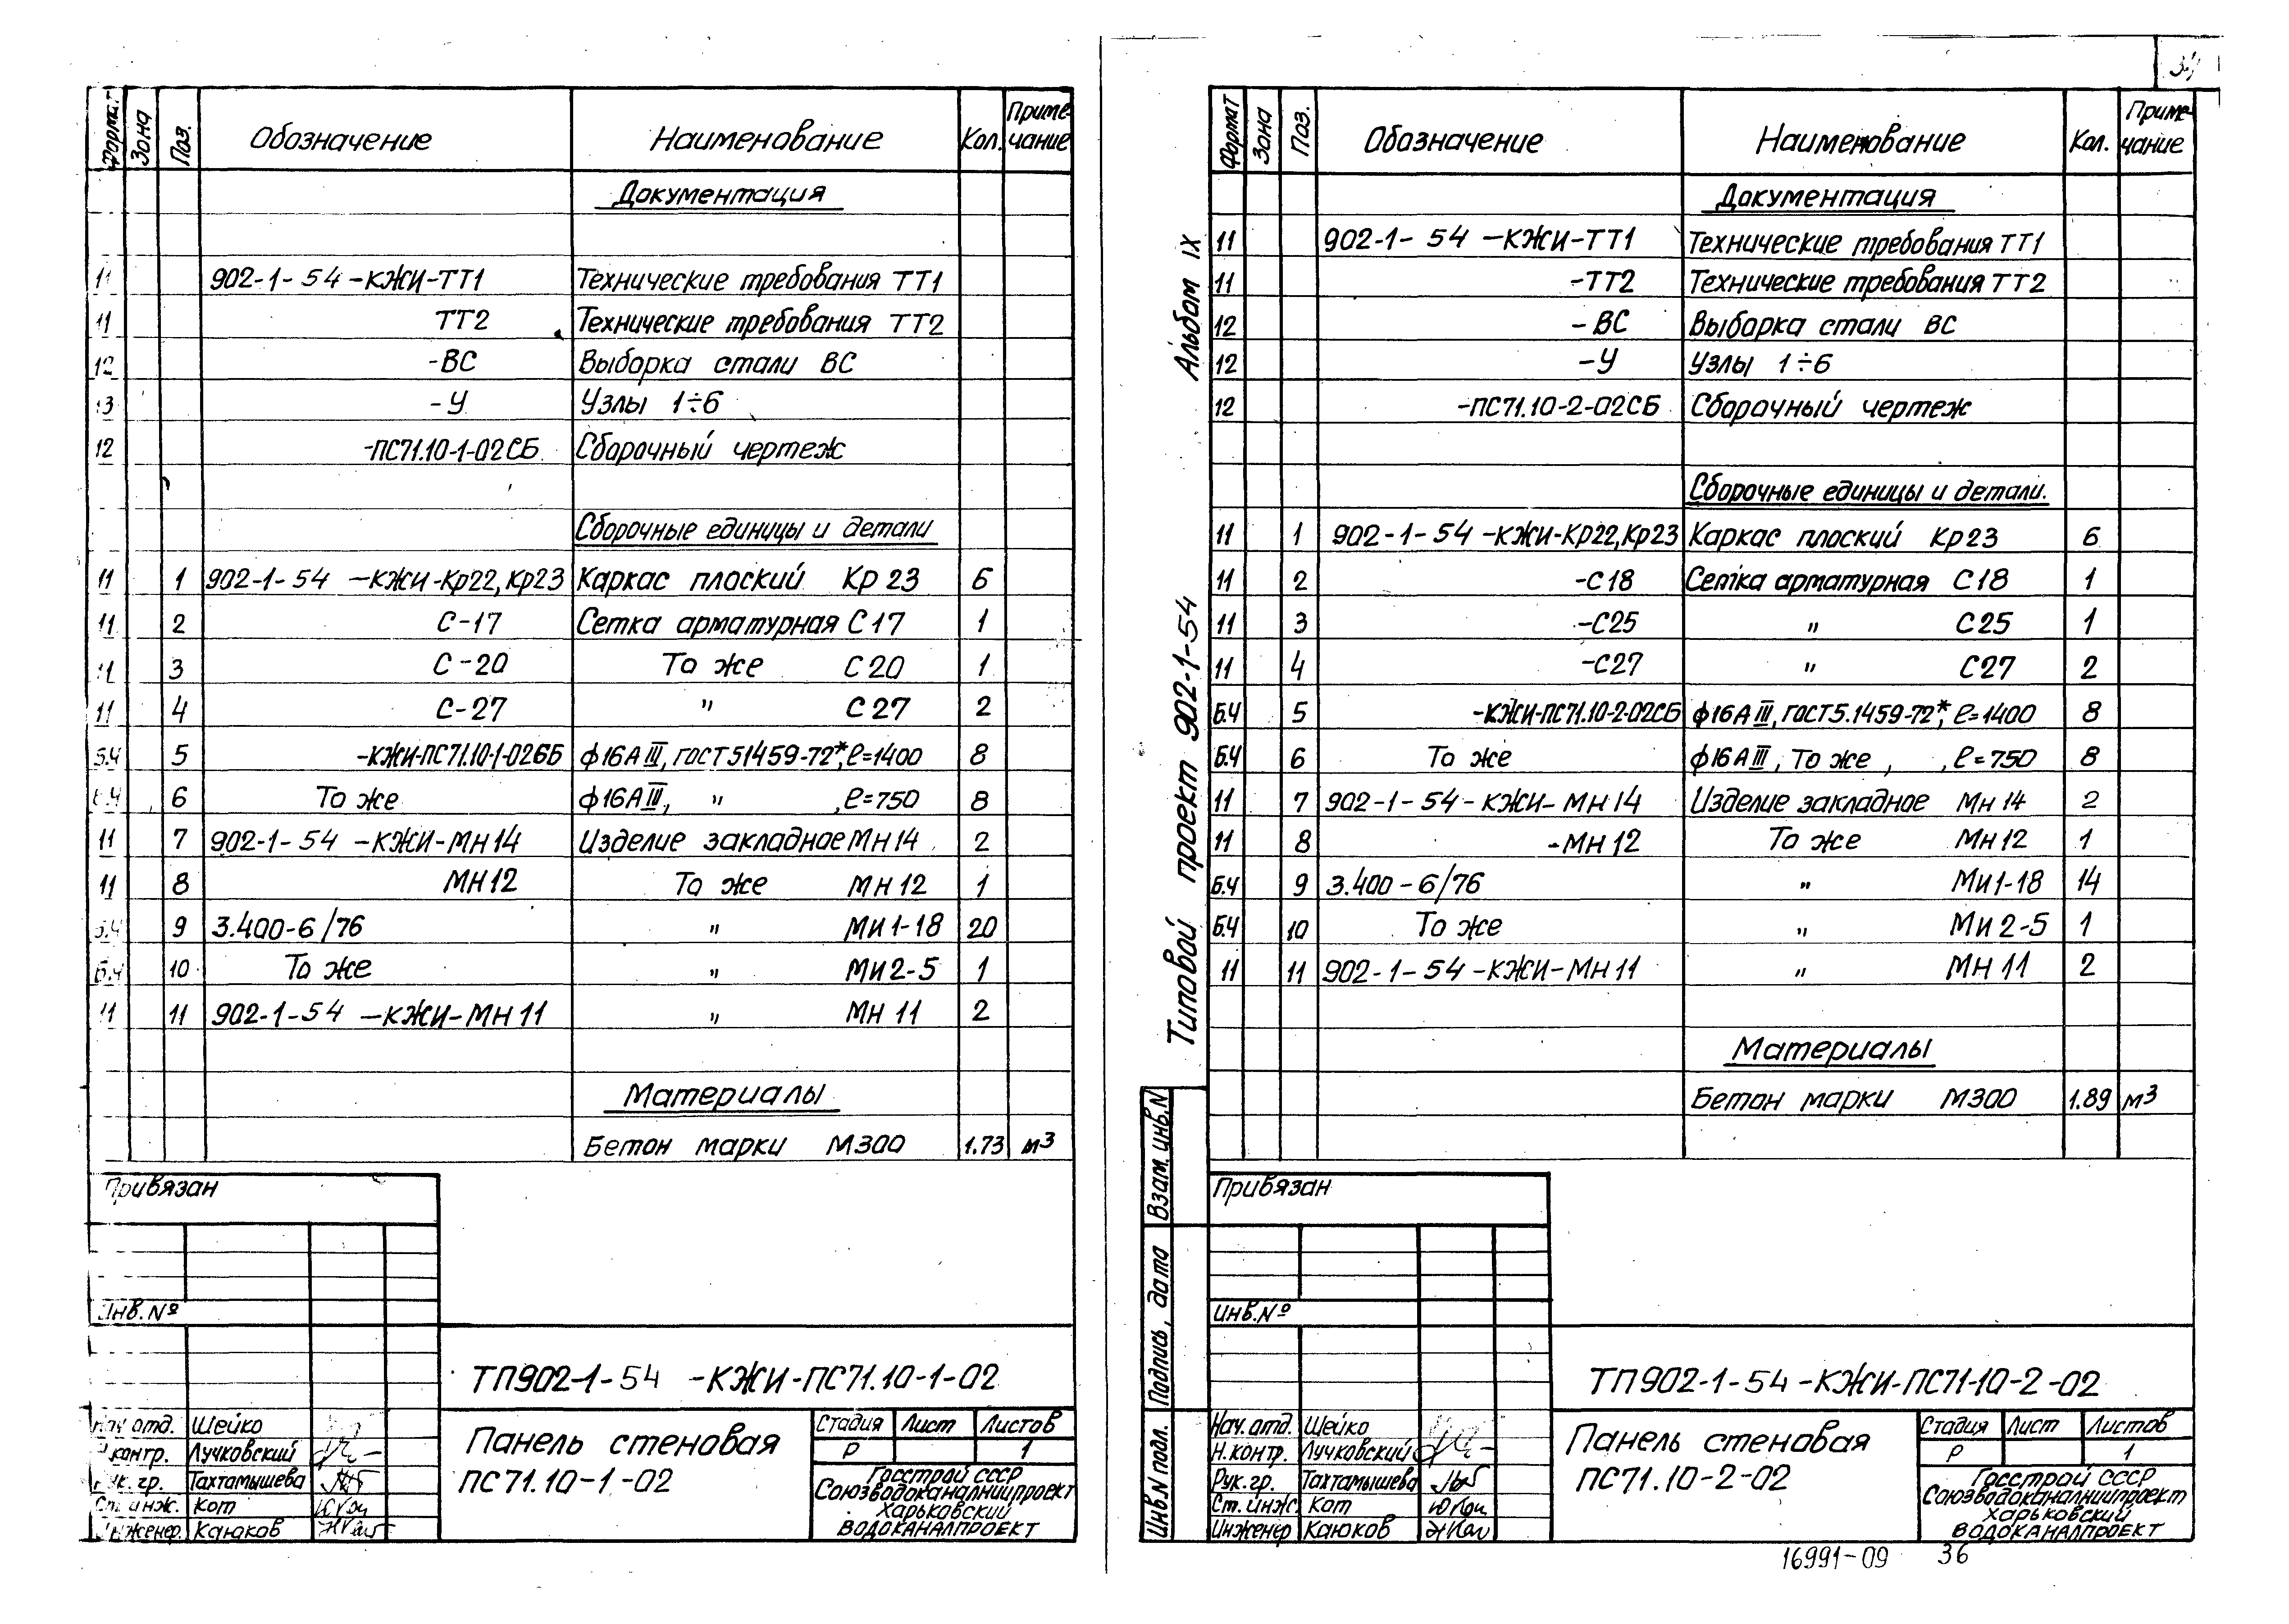 Формат Зона Поз. Обозначение Наименование Кол. Приме-чание
Документация
11 902-1-54 -КЖИ-ТТ1 Технические требования ТТ1
11 ТТ2 Технические требования ТТ2
12 -ВС Выборка стали ВС
13 -У Узлы 1÷6
12 -ПС71.10-1-02СБ Сборочный чертеж
Сборочные единицы и детали
11 1 902-1-54 -КЖИ-Кр22,Кр23 Каркас плоский Кр 23 6
11 2 С-17 Сетка арматурная С17 1
11 3 С-20 То же С20 1
11 4 С-27 " С27 2
Б.Ч 5 -КЖИ-ПС71.10-1-02бБ ф16АIII, ГОСТ51459-72*, ℓ=1400 8
Б.Ч 6 То же ф16АIII, " , ℓ=750 8
11 7 902-1-54 -КЖИ-МН14 Изделие закладное МН14 2
11 8 МН12 То же МН12 1
Б.Ч 9 3.400-6/76 " МИ1-18 20
Б.Ч 10 То же " МИ2-5 1
11 11 902-1-54 -КЖИ-МН11 " МН 11 2
Материалы
Бетон марки М300 1.73 м3
Привязан
Инв.№
ТП902-1-54 -КЖИ-ПС71.10-1-02
Нач.отд. Шейко
Н.контр. Лучковский
Рук.гр. Тахтамышева
Ст.инж. Кот
Инженер. Каюков
Панель стеновая
ПС71.10-1-02
Стадия Лист Листов
Р 1
Госстрой СССР
Союзводоканалниипроект
Харьковский
ВОДОКАНАЛПРОЕКТ
Альбом IX
Типовой проект 902-1-54
Взам.инв.N
Подпись, дата
Инв.N подл.
Формат Зона Поз. Обозначение Наименование Кол. Приме-чание
Документация
11 902-1-54 -КЖИ-ТТ1 Технические требования ТТ1
11 -ТТ2 Технические требования ТТ2
12 -ВС Выборка стали ВС
12 -У Узлы 1÷6
12 -ПС71.10-2-02СБ Сборочный чертеж
Сборочные единицы и детали.
11 1 902-1-54 -КЖИ-Кр22,Кр23 Каркас плоский Кр23 6
11 2 -С18 Сетка арматурная С18 1
11 3 -С25 " С25 1
11 4 -С27 " С27 2
Б.Ч 5 -КЖИ-ПС71.10-2-02СБ ф16АIII, ГОСТ5.1459-72*, ℓ=1400 8
Б.Ч 6 То же ф16АIII, То же , , ℓ=750 8
11 7 902-1-54-КЖИ-МН14 Изделие закладное МН14 2
11 8 -МН12 То же МН12 1
Б.Ч 9 3.400-6/76 " МИ1-18 14
Б.Ч 10 То же " МИ2-5 1
11 11 902-1-54-КЖИ-МН11 " МН 11 2
Материалы
Бетон марки М300 1.89 м3
Привязан
Инв.№
ТП902-1-54-КЖИ-ПС71-10-2-02
Нач.отд. Шейко
Н.контр. Лучковский
Рук.гр. Тахтамышева
Ст.инж. Кот
Инженер Каюков
Панель стеновая
ПС71.10-2-02
Стадия Лист Листов
Р 1
Госстрой СССР
Союзводоканалниипроект
Харьковский
ВОДОКАНАЛПРОЕКТ
16991-09 36